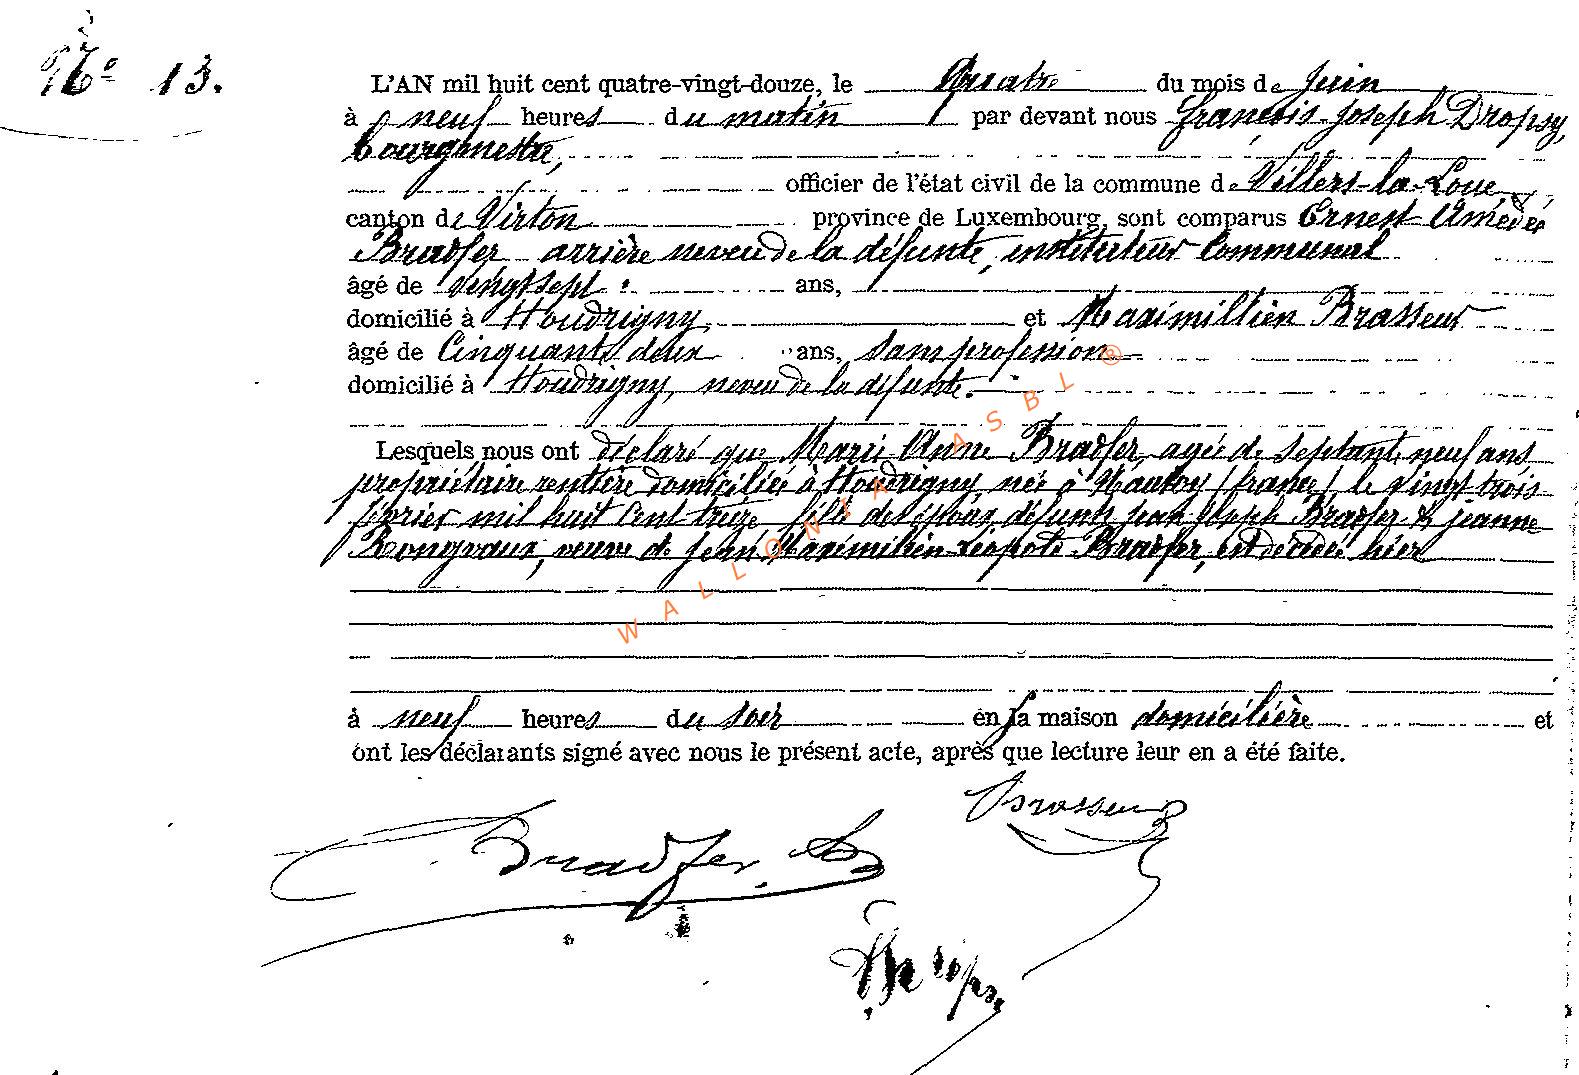 No 13.
L'AN mil huit cent quatre-vingt-douze, le Quatre du mois de Juin
à neuf heures du matin par devant nous françois Joseph Dropsy,
bourgmestre,
officier de l'état civil de la commune de Villers-la-Loue
canton de Virton province de Luxembourg, sont comparus Ernest Amédée
Bradfer arrière neveu de la défunte, instituteur Communal
âgé de vingt sept ans,
domicilié à Houdrigny et Maximillien Brasseur
âgé de Cinquante deux ans, sans profession
domicilié à Houdrigny, neveu de la défunte.
Lesquels nous ont déclaré que Marie Anne Bradfer, agée de septante neuf ans
propriétaire rentière domiciliée à Houdrigny, née à (france) le vingt trois
février mil huit Cent treize fille des époux défunts Jean Joseph Bradfer & jeanne
Rongvaux, veuve de Jean Maximilien Léopold Bradfer, est décédée hier
à neuf heures du soir en la maison domicilière et
ont les déclarants signé avec nous le présent acte, après que lecture leur en a été faite.
Brasseur
Bradfer
Dropsy
WALLONIA ASBL ®